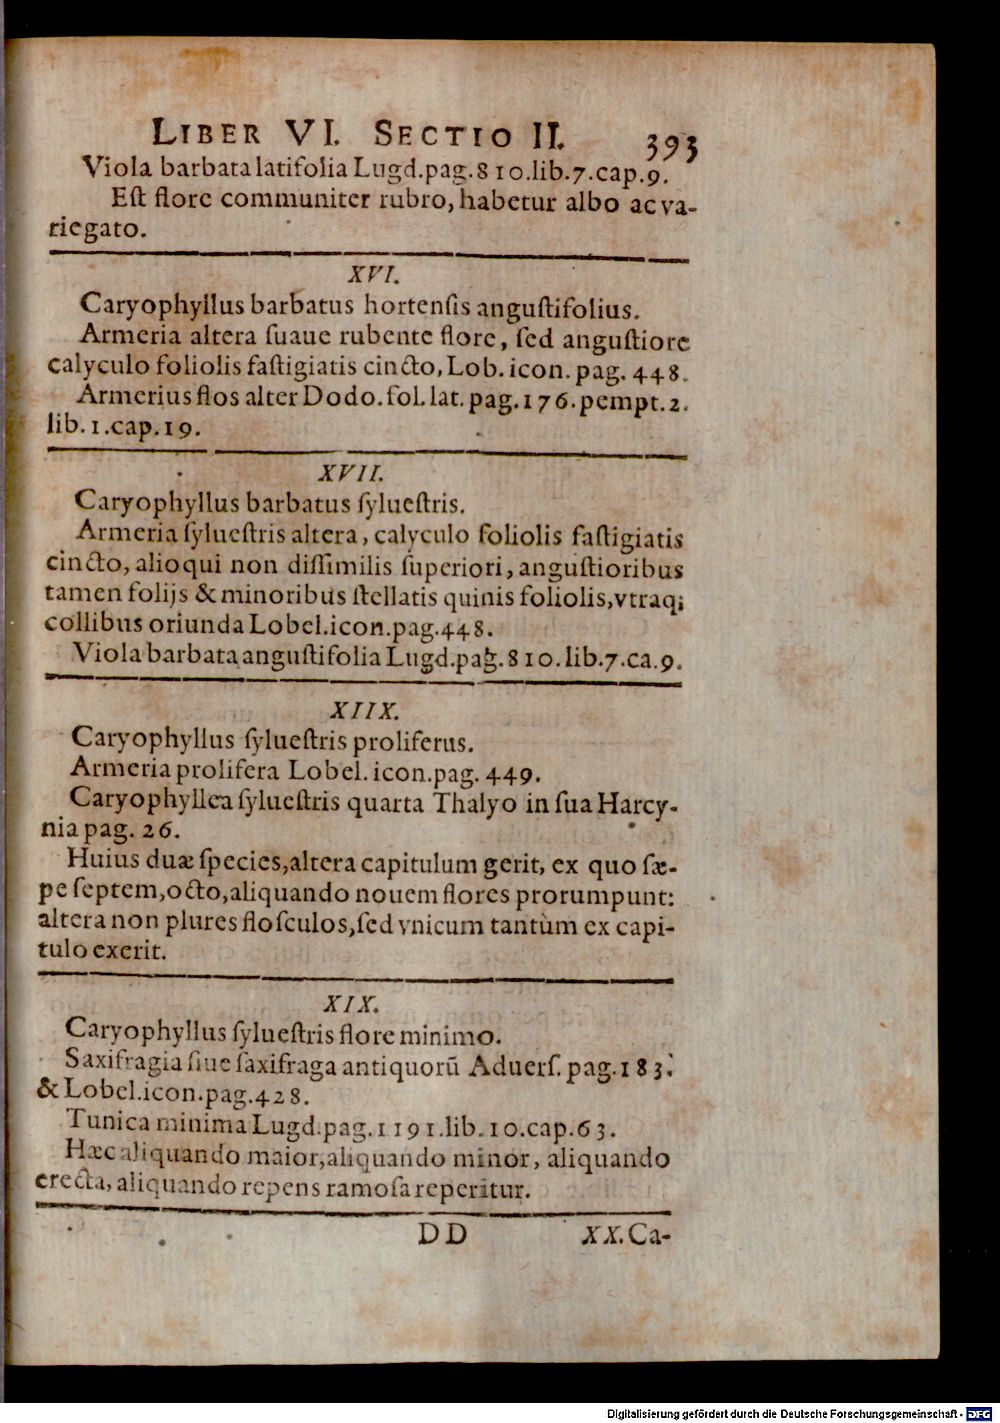 LIBER VI. SECTIO II. 393
Viola barbata latifolia Lugd.pag.810.lib.7.cap.9.
Eſt flore communiter rubro, habetur albo ac va-
riegato.
XVI.
Caryophyllus barbatus hortenſis anguſtifolius.
Armeria altera ſuaue rubente flore, ſed anguſtiore
calyculo foliolis faſtigiatis cincto, Lob. icon. pag. 448.
Armerius flos alter Dodo. fol. lat. pag. 176. pempt. 2.
lib. 1. cap. 19.
XVII.
Caryophyllus barbatus ſylueſtris.
Armeria ſylueſtris altera, calyculo foliolis faſtigiatis
cincto, alioqui non diſſimilis ſuperiori, anguſtioribus
tamen folijs & minoribus ſtellatis quinis foliolis, vtraq;
collibus oriunda Lobel. icon. pag. 448.
Viola barbata anguſtifolia Lugd.pag.810.lib.7.ca.9.
XIIX.
Caryophyllus ſylueſtris proliferus.
Armeria prolifera Lobel. icon. pag. 449.
Caryophyllea ſylueſtris quarta Thalyo in ſua Harcy-
nia pag. 26.
Huius duæ ſpecies, altera capitulum gerit, ex quo ſæ-
pe ſeptem, octo, aliquando nouem flores prorumpunt:
altera non plures floſculos, ſed vnicum tantùm ex capi-
tulo exerit.
XIX.
Caryophyllus ſylueſtris flore minimo.
Saxifragia ſiue ſaxifraga antiquorū Aduerſ. pag. 183.
& Lobel. icon. pag. 428.
Tunica minima Lugd. pag. 1191. lib. 10. cap. 63.
Hæc aliquando maior, aliquando minor, aliquando
erecta, aliquando repens ramoſa reperitur.
DD XX. Ca-
Digitalisierung gefördert durch die Deutsche Forschungsgemeinschaft - DFG